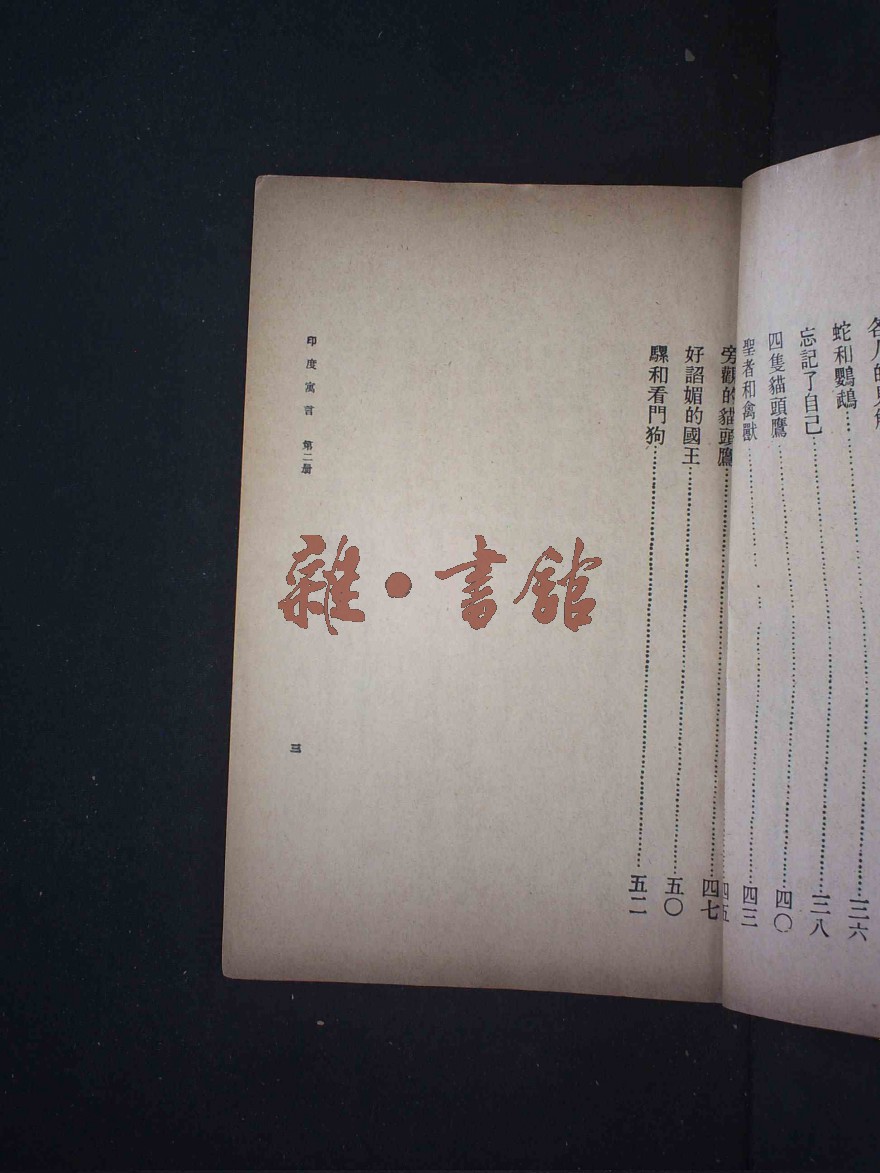 各人的
蛇和鸚鵡……三六
忘記了自己……三八
四隻貓頭鷹……四〇
聖者和禽獸……四三
四五
旁觀的貓頭鷹……四七
好諂媚的國王……五〇
騾和看門狗……五二
印度寓言 第二册
三
雜·書館